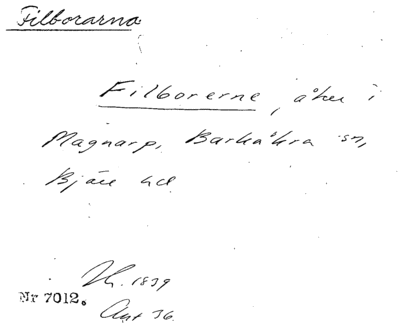 Filborarna
Filborerne, åker i
Magnarp, Barkåkra sn,
Bjäre hd
1839
Nr 7012.
36.